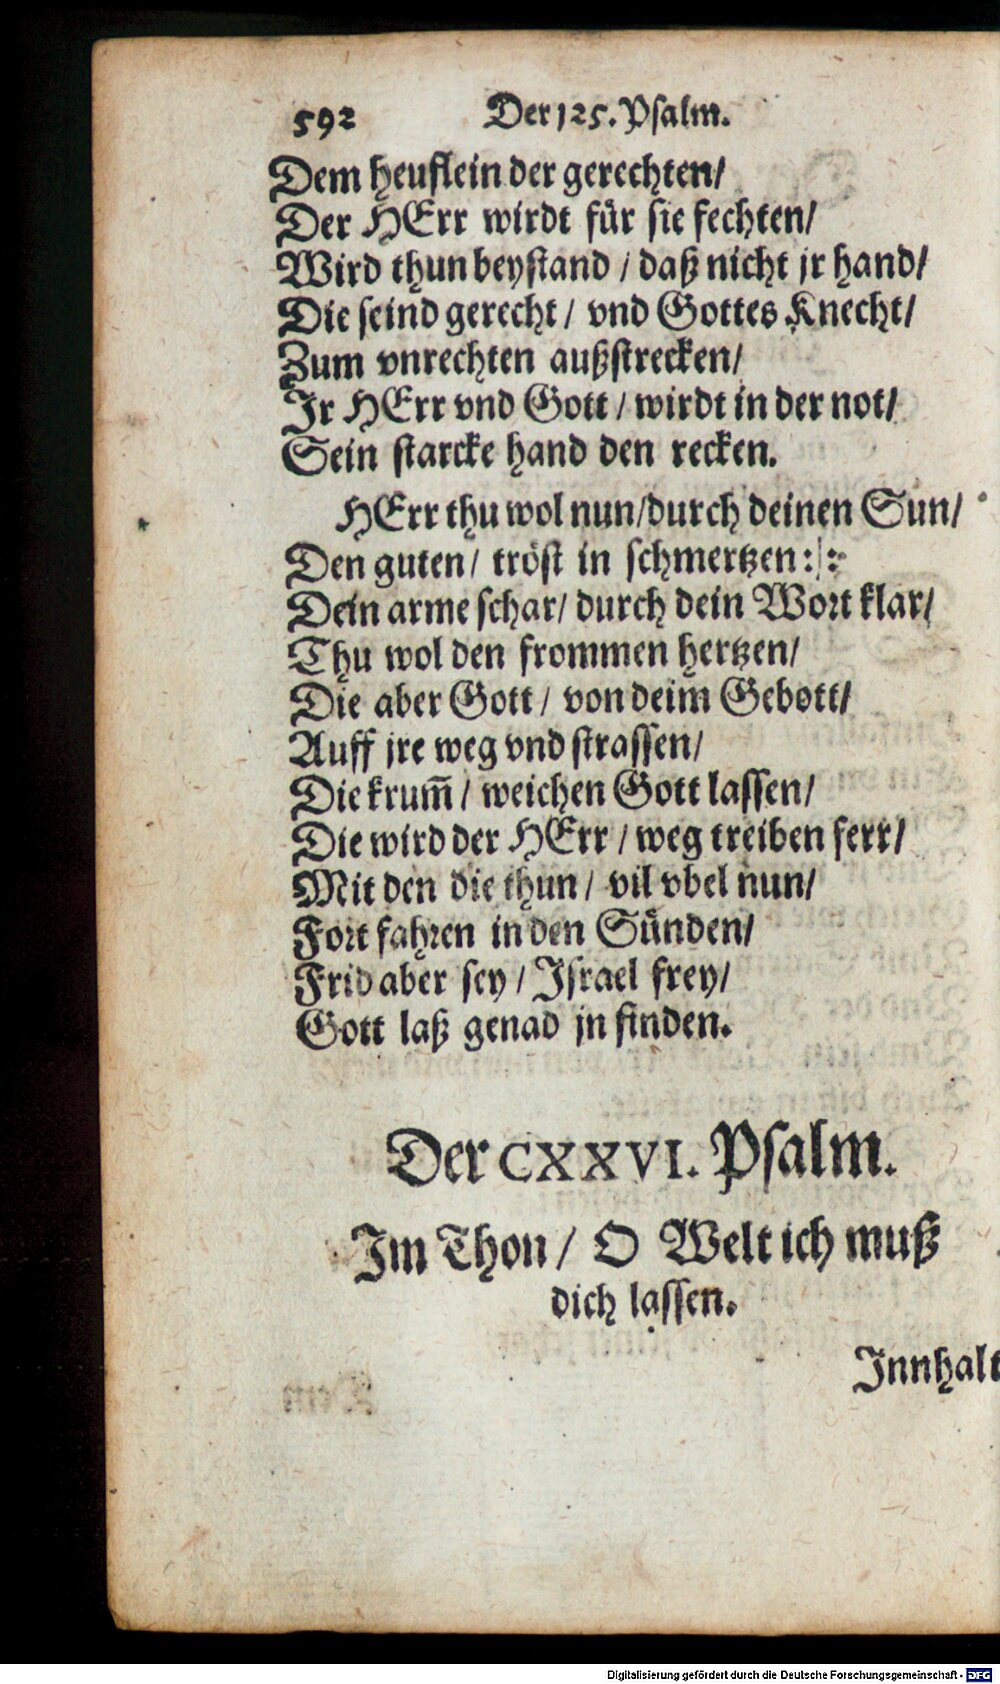 592 Der 125. Psalm.
Dem heuflein der gerechten/
Der HErr wirdt für sie fechten/
Wird thun beystand / daß nicht jr hand/
Die seind gerecht / vnd Gottes Knecht/
Zum vnrechten außstrecken/
Jr HErr vnd Gott / wirdt in der not/
Sein starcke hand den recken.
HErr thu wol nun/durch deinen Sun/
Den guten/ tröst in schmertzen :|:
Dein arme schar/ durch dein Wort klar/
Thu wol den frommen hertzen/
Die aber Gott / von deim Gebott/
Auff jre weg vnd strassen/
Die krum̃ / weichen Gott lassen/
Die wird der HErr / weg treiben ferr/
Mit den die thun / vil vbel nun/
Fort fahren in den Sünden/
Frid aber sey / Israel frey/
Gott laß genad jn finden.
Der CXXVI. Psalm.
Im Thon / O Welt ich muß
dich lassen.
Innhalt
Digitalisierung gefördert durch die Deutsche Forschungsgemeinschaft - DFG